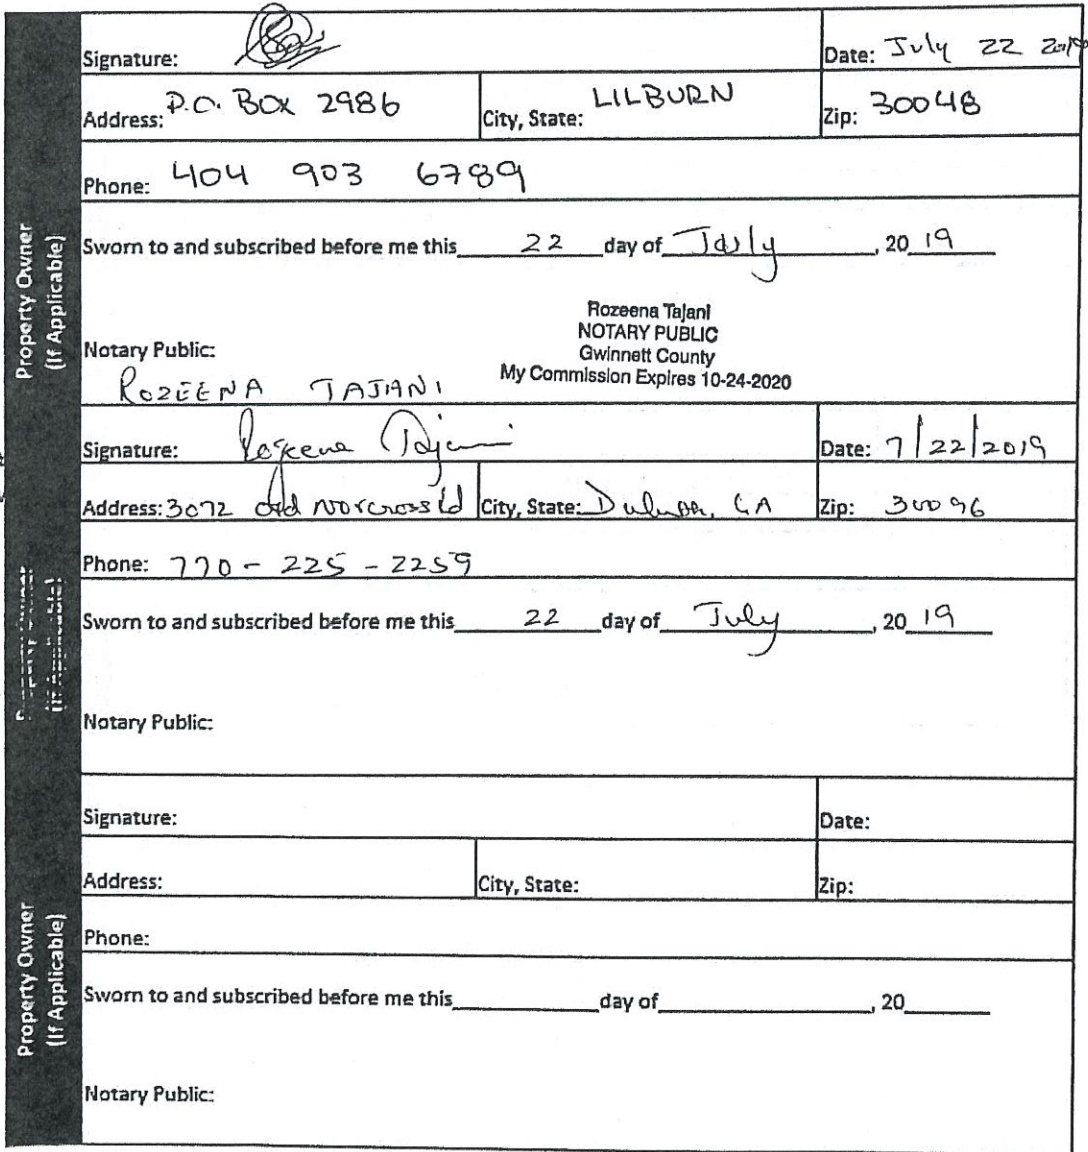 Property Owner
(If Applicable)
Signature:
Date: July 22 2019
Address: P.O. BOX 2986 City, State: LILBURN Zip: 30048
Phone: 404 903 6789
Sworn to and subscribed before me this 22 day of July, 20 19
Rozeena Tajani
NOTARY PUBLIC
Gwinnett County
My Commission Expires 10-24-2020
Notary Public:
ROZEENA TAJANI
Property Owner
(If Applicable)
Signature: Rozeena Tajani Date: 7/22/2019
Address: 3072 old norcross rd City, State: Duluth, GA Zip: 30096
Phone: 770-225-2259
Sworn to and subscribed before me this 22 day of July, 20 19
Notary Public:
Property Owner
(If Applicable)
Signature: Date:
Address: City, State: Zip:
Phone:
Sworn to and subscribed before me this day of , 20
Notary Public: